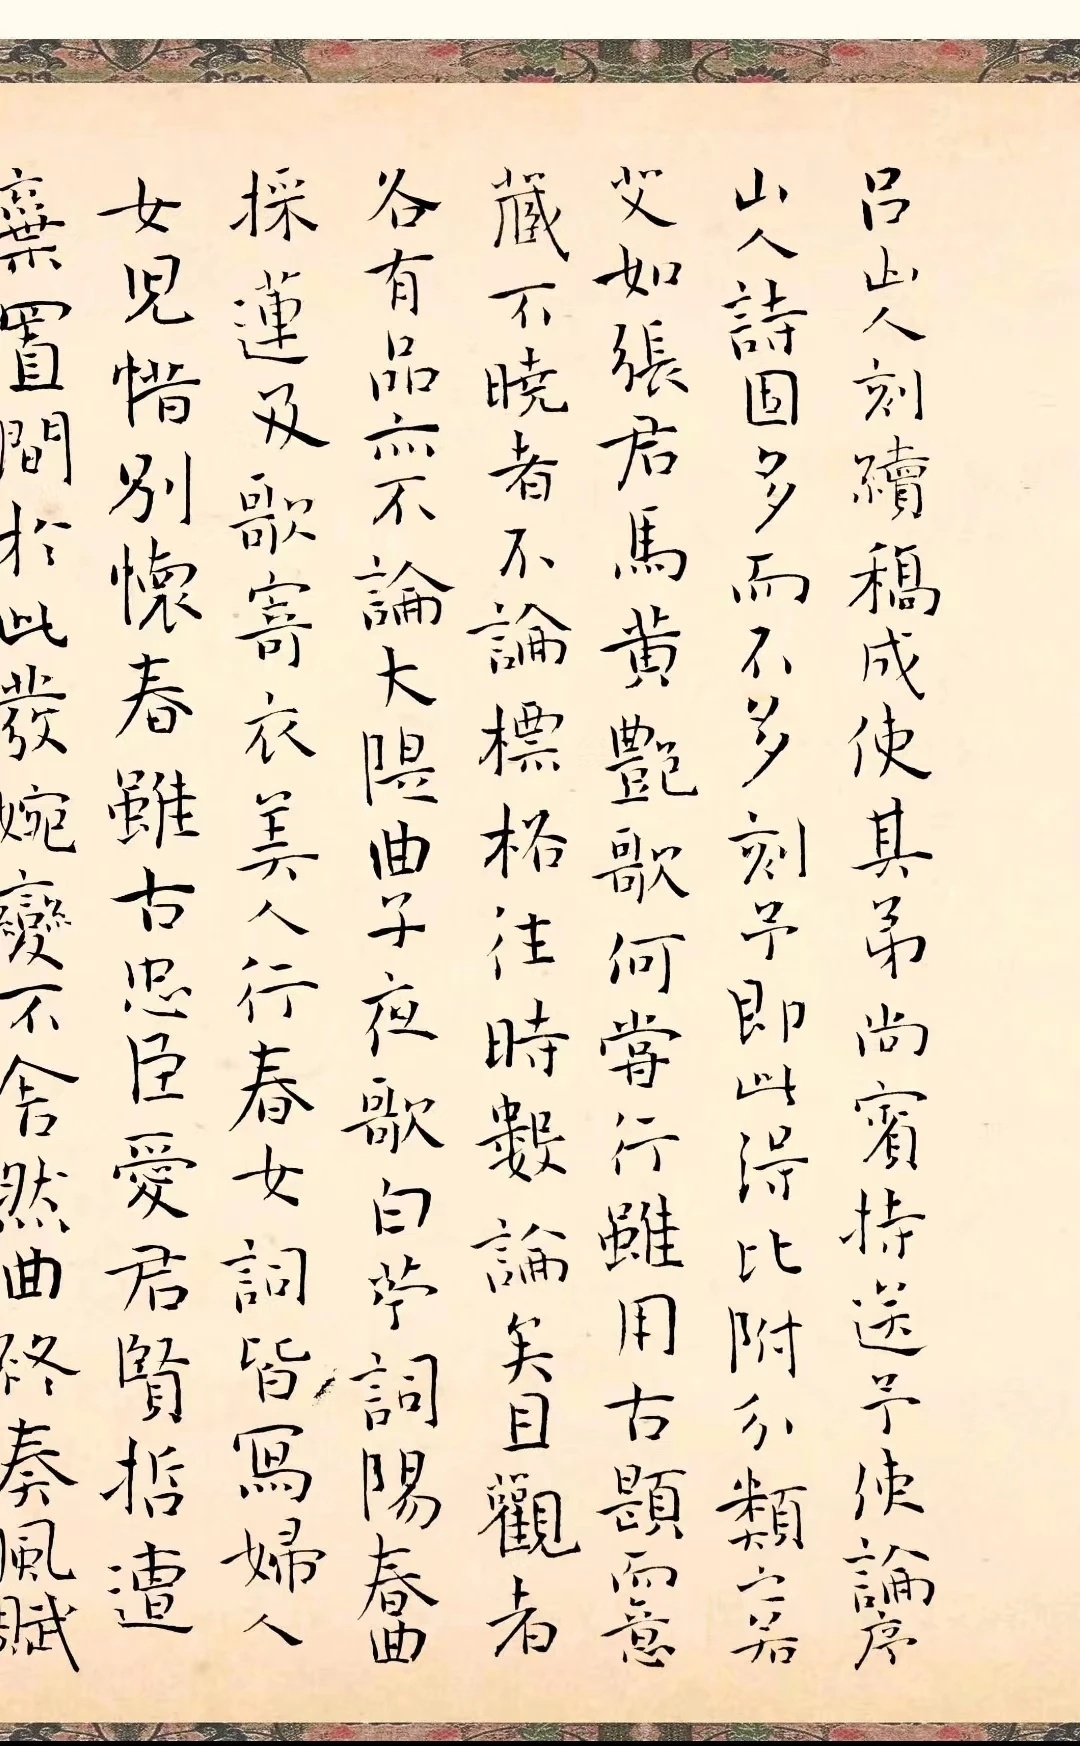 呂山人刻續稿成使其弟尚賓持送予使論序
山人詩固多而不多刻予即此得比附分類之若
艾如張君馬黃艷歌何嘗行雖用古題而意
藏不曉者不論標格往時數論矣且觀者
各有品亦不論大隄曲子夜歌白苧詞陽春曲
採蓮及歌寄衣美人行春女詞皆寫婦人
女兒惜別懷春雖古忠臣愛君賢哲遭
棄置間於此發婉孌不舍然曲終奏風賦